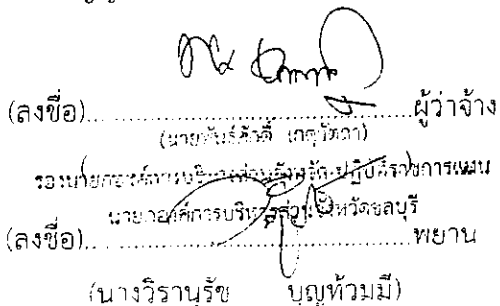 (ลงชื่อ)....................ผู้ว่าจ้าง
(นายพันธ์ศักดิ์ เกตุวัตถา)
รองนายกองค์การบริหารส่วนจังหวัด ปฏิบัติราชการแทน
นายกองค์การบริหารส่วนจังหวัดชลบุรี
(ลงชื่อ)....................พยาน
(นางวิรานุรัช บุญท้วมมี)